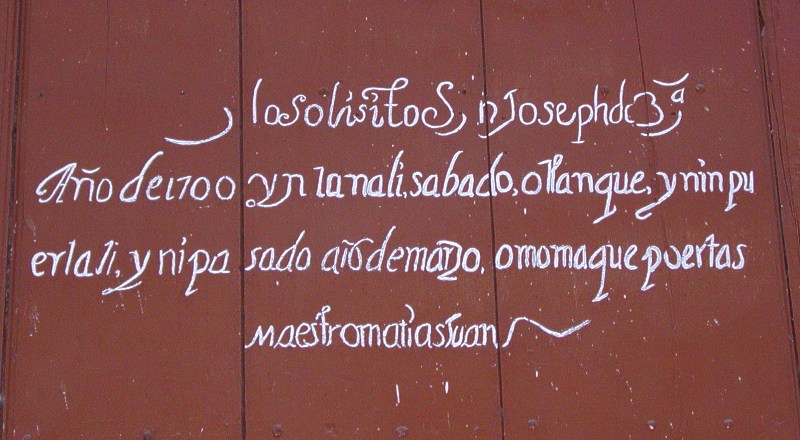 losolisitoS, n Joseph de
Año de 1700 y n lanali, sabado, o Kanque, y ninpu
erlali, y nipa sado año de marzo, omomaque puertas
maestro matias Juan